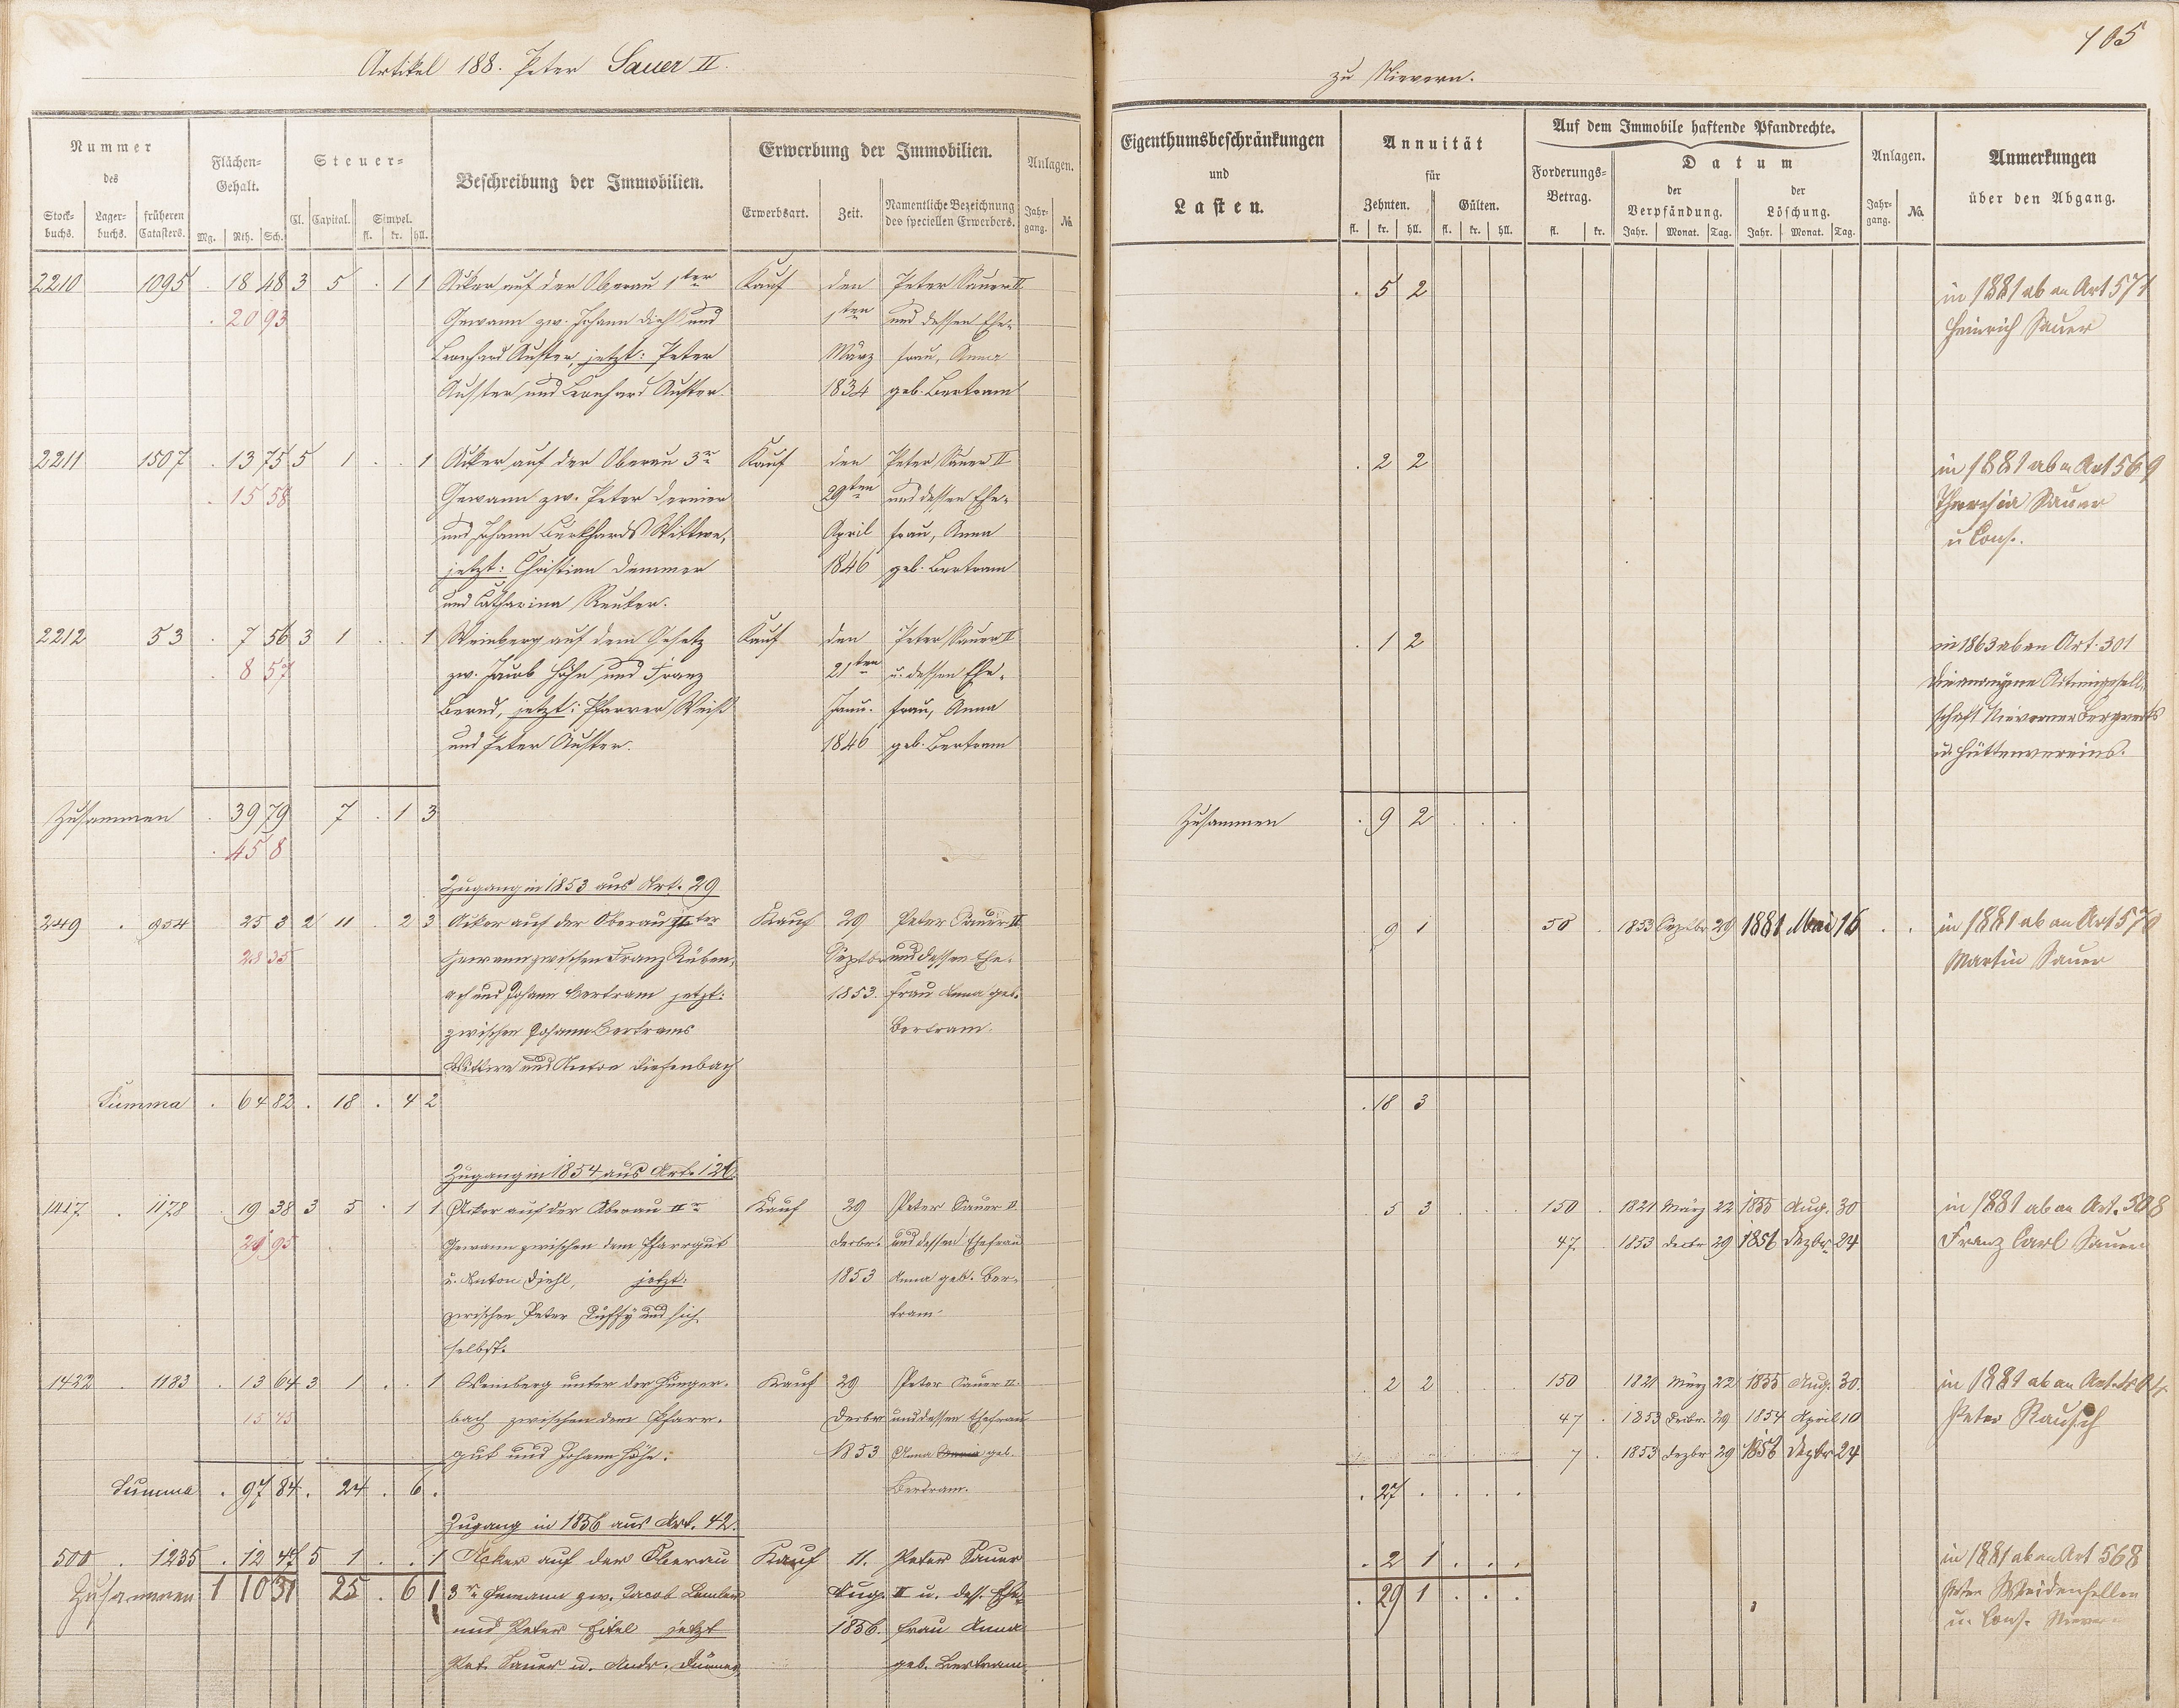 Artikel 188. Peter Sauer II.
Nummer des
Stockbuchs. Lagerbuchs. früheren Catasters.
Flächen-Gehalt.
Mg. Rth. Sch.
Steuer-
Cl. Capital. Simpel. fl. kr. hll.
Beschreibung der Immobilien.
Erwerbung der Immobilien.
Erwerbsart. Zeit. Namentliche Bezeichnung des speciellen Erwerbers.
Anlagen.
Jahrgang. No.
2210 1095 . 18 48 3 5 . 1 1 Acker auf der Oberau 1ter Kauf den Peter Sauer II
. 20 93 Gewann zw. Johann Diehl und 1ten und dessen Ehe-
Leonhard Auster, jetzt: Peter März frau, Anna
Auster und Leonhard Auster. 1834 geb. Bertram
2211 1507 . 13 75 5 1 . . 1 Acker auf der Oberau 3r Kauf den Peter Sauer II
. 15 58 Gewann zw. Peter 29ten und dessen Ehe-
und Johann Burkhards Wittwe, April frau, Anna
jetzt: Christian Demmer 1846 geb. Bertram
und Catharina Reuter.
2212 53 . 7 56 3 1 . . 1 Weinberg auf dem Kauf den Peter Sauer II
. 8 57 zw. Jacob Höhn und Franz 21ten u. dessen Ehe-
Bernd, jetzt: Pfarrer Weiß Janu. frau, Anna
und Peter Auster. 1846 geb. Bertram
Zusammen . 39 79 7 . 1 3
. 45 8
Zugang in 1853 aus Art. 29
249 . 954 25 3 2 11 . 2 3 Acker auf der Oberau IIter Kauf 29 Peter Sauer II
28 35 Gewann zwischen Franz Septbr und dessen Ehe-
und Johann Bertram jetzt: 1853. frau Anna geb.
zwischen Johann Bertrams Bertram.
Wittwe und Anton Diefenbach
Summa . 64 82 . 18 . 4 2
Zugang in 1854 aus Art. 126.
1417 . 1178 . 19 38 3 5 . 1 1 Acker auf der Oberau IIr Kauf 29 Peter Sauer II
95 Gewann zwischen dem Pfarrgut Decbr. und dessen Ehefrau
u. Anton Diehl, jetzt: 1853 Anna geb. Ber-
zwischen Peter und sich tram.
selbst.
1422 . 1183 . 13 64 3 1 . . 1 Weinberg unter der Kauf 29 Peter Sauer II.
15 45 bach zwischen dem Pfarr- Decbr und dessen Ehefrau
gut und Johann Höhn. 1853 Anna geb.
Summa . 97 84 . 24 . 6 . Bertram.
Zugang in 1856 aus Art. 42.
500 . 1235 . 12 47 5 1 . . 1 Acker auf der Oberau Kauf 11. Peter Sauer
Zusammen 1 10 31 25 . 6 1 3r Gewann zw. Jacob Aug. II u. dess. Ehe-
und Peter jetzt 1856. frau Anna
Pet. Sauer u. Andr. geb. Bertram
105
zu Nievern.
Eigenthumsbeschränkungen und Lasten.
Annuität für
Zehnten. Gülten.
fl. kr. hll. fl. kr. hll.
Auf dem Immobile haftende Pfandrechte.
Forderungs-Betrag. fl. kr.
Datum
der Verpfändung. der Löschung.
Jahr. Monat. Tag. Jahr. Monat. Tag.
Anlagen.
Jahrgang. No.
Anmerkungen über den Abgang.
. 5 2 in 1881 ab an Art 571
Heinrich Sauer
. 2 2 in 1881 ab an Art 569
Theresia Sauer
u Cons.
. 1 2 in 1863 ab an Art. 301
die anonyme Actiengesell-
schaft Nieverner Bergwerks
u. Hüttenvereins.
Zusammen . 9 2 . . .
9 1 50 . 1853 Septbr 29 1881 Mai 16 . . in 1881 ab an Art 570
Martin Sauer
. 18 3
5 3 150 . 1821 März 22 1855 Aug. 30 in 1881 ab an Art. 508
47. 1853 Decbr 29 1856 Dezbr. 24 Franz Carl Sauer
2 2 150 1821 März 22 1855 Aug. 30. in 1881 ab an Art.
47 . 1853 Decbr. 29 1854 April 10 Peter Rausch
7 . 1853 Dezbr 29 1856 Dezbr 24
. 27 . . . .
. 2 1 . . . in 1881 ab an Art 568
. 29 1 . . . Peter Weidenfeller
u. Cons.